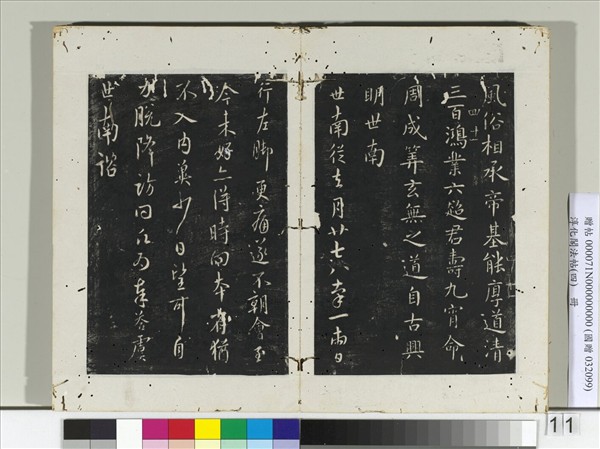 風俗相承帝基能厚道清
三百鴻業六超君壽九霄命
四十
周成筭玄無之道自古興
明世南
世南從去月廿七八率一兩日
行左脚更痛遂不朝會至
今未好亦得時向本省猶
不入內冀少日望可自
力脫降訪問為奉答虞
世南諮
贈帖 000071N000000000 (國贈 032099)
淳化閣法帖(四) 冊
11